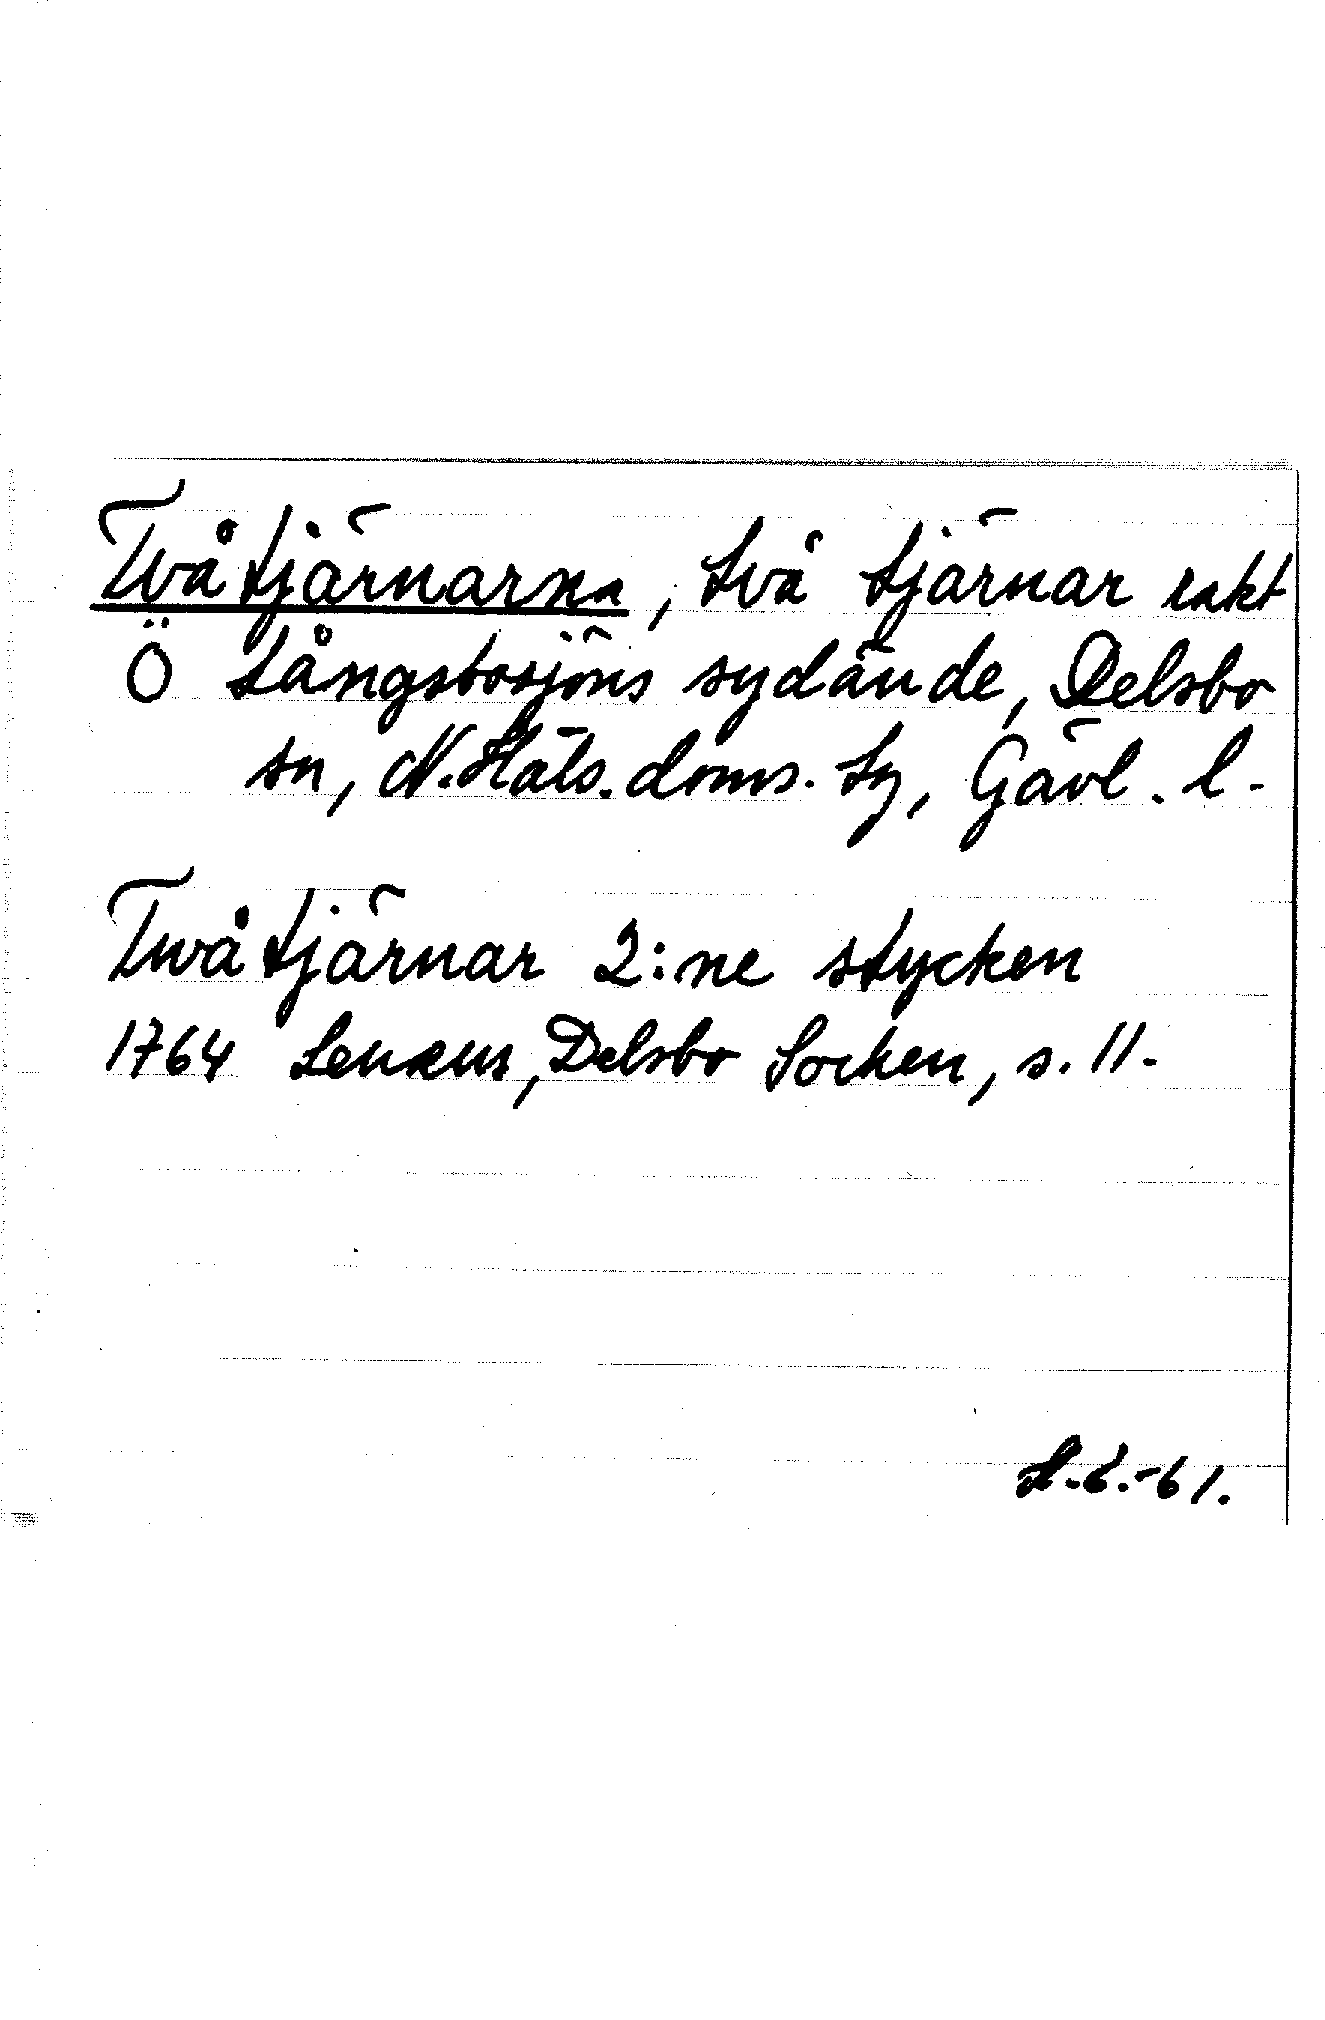 Tvåtjärnarna, två tjärnar rakt
Ö Långsbosjöns sydände, Delsbo
sn, N. Häls. doms. tg, Gävl. l.
Twåtjärnar 2:ne stycken
1764 Lenæus, Delsbo Socken, s. 11.
-61.